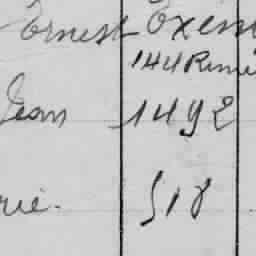 Ernest Oxen
144 Rem
Jean 1492
rie. 518